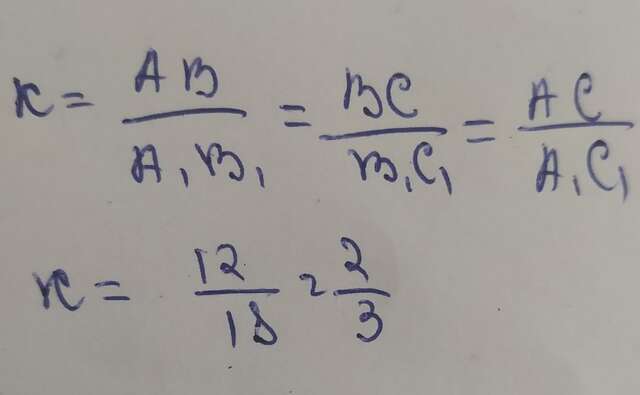 K = AB / A₁B₁ = BC / B₁C₁ = AC / A₁C₁
K = 12 / 18 = 2 / 3